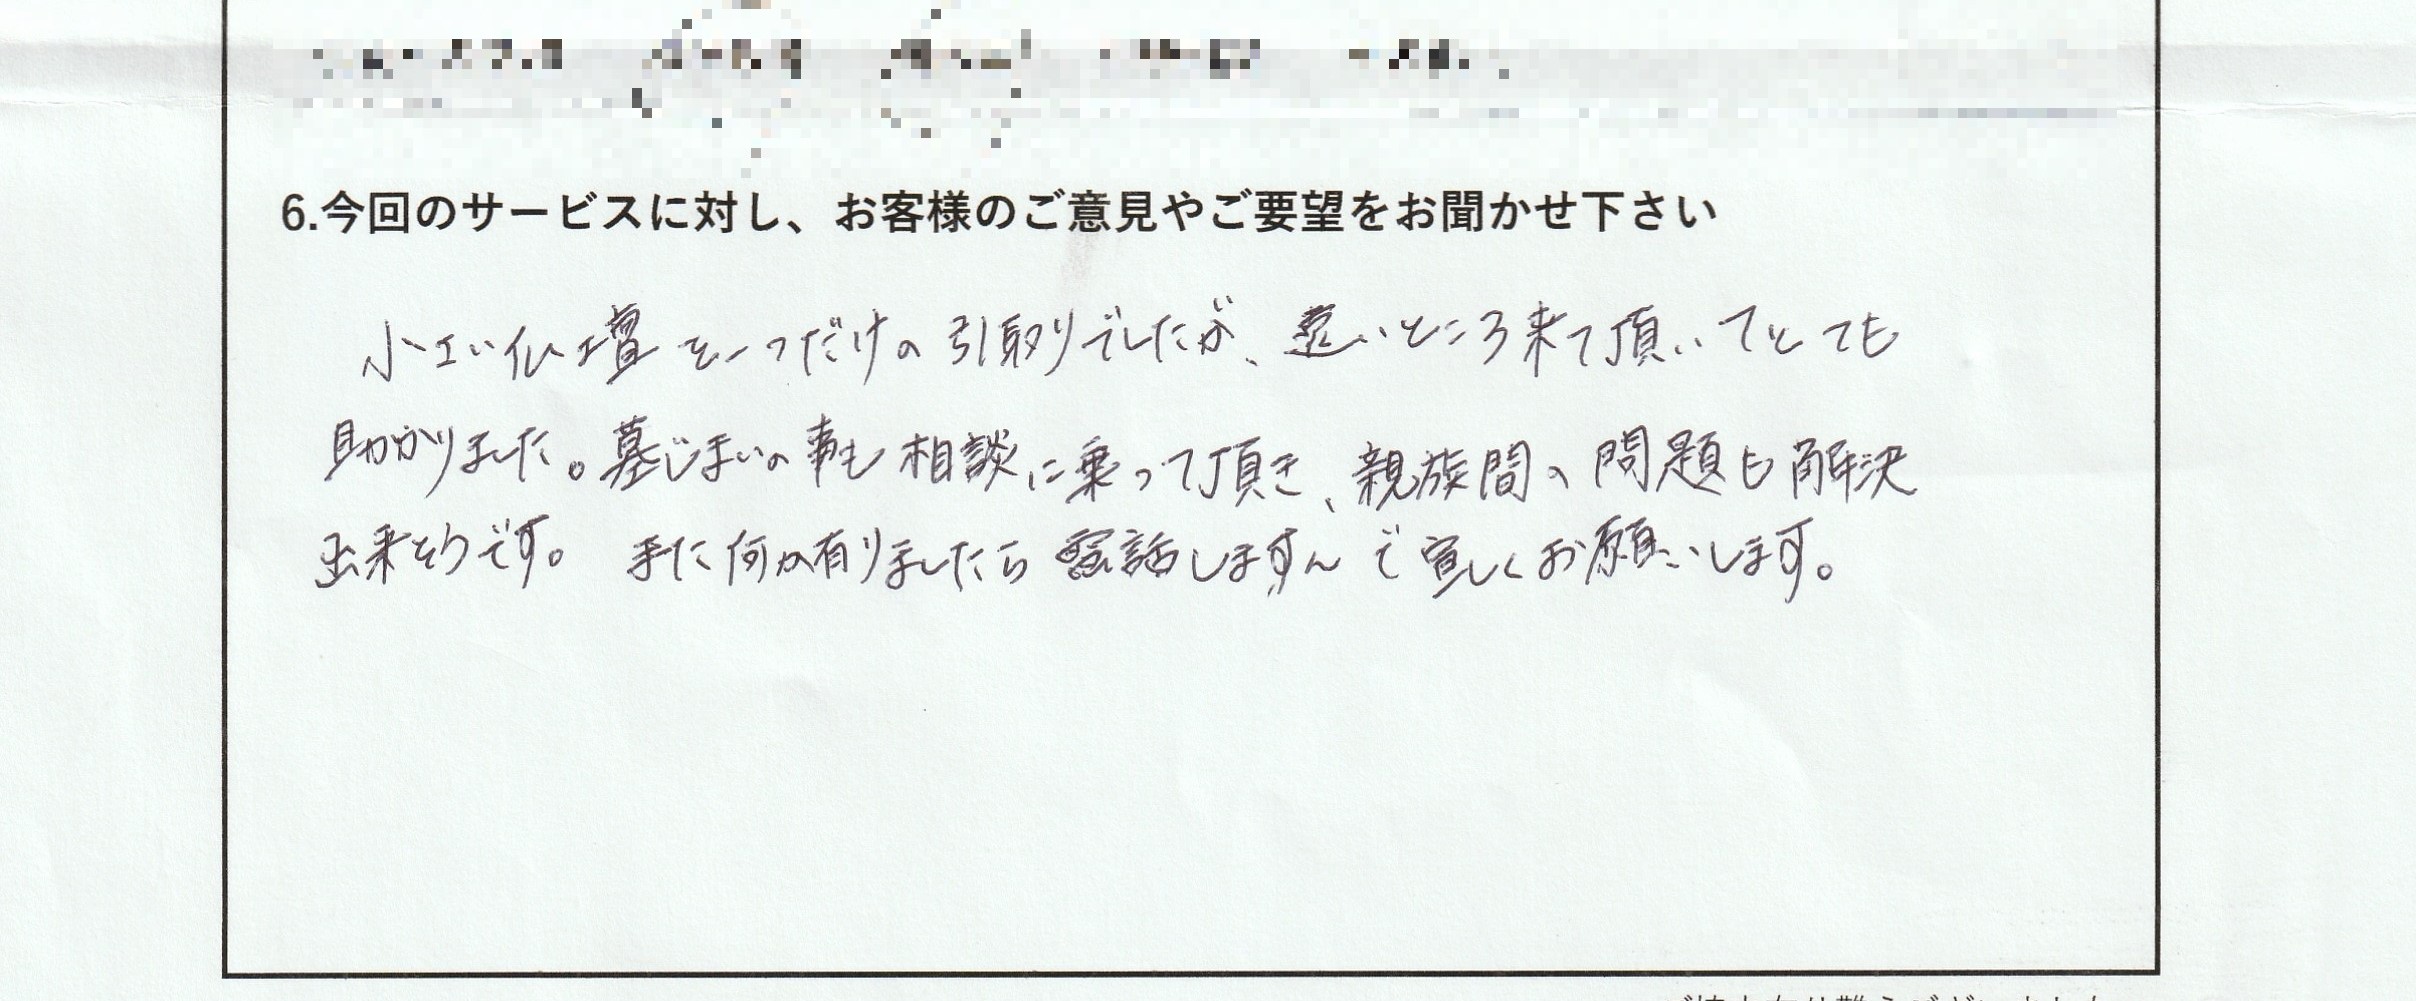 6.今回のサービスに対し、お客様のご意見やご要望をお聞かせ下さい
小さい仏壇を一つだけの引取りでしたが、遠いところ来て頂いてとても
助かりました。墓じまいの事も相談に乗って頂き、親族間の問題も解決
出来そうです。また何か有りましたら電話しますんで宜しくお願いします。